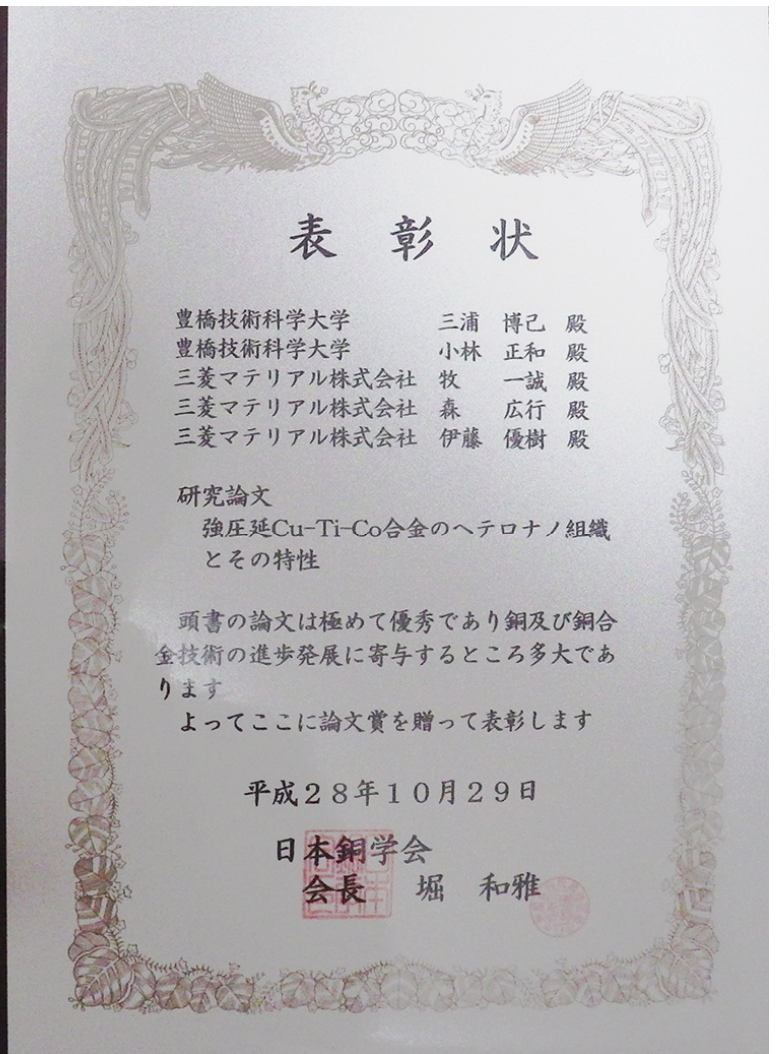 表 彰 状
豊橋技術科学大学 三浦 博己 殿
豊橋技術科学大学 小林 正和 殿
三菱マテリアル株式会社 牧 一誠 殿
三菱マテリアル株式会社 森 広行 殿
三菱マテリアル株式会社 伊藤 優樹 殿
研究論文
強圧延Cu-Ti-Co合金のヘテロナノ組織
とその特性
頭書の論文は極めて優秀であり銅及び銅合
金技術の進歩発展に寄与するところ多大であ
ります
よってここに論文賞を贈って表彰します
平成28年10月29日
日本銅学会
会長 堀 和雅